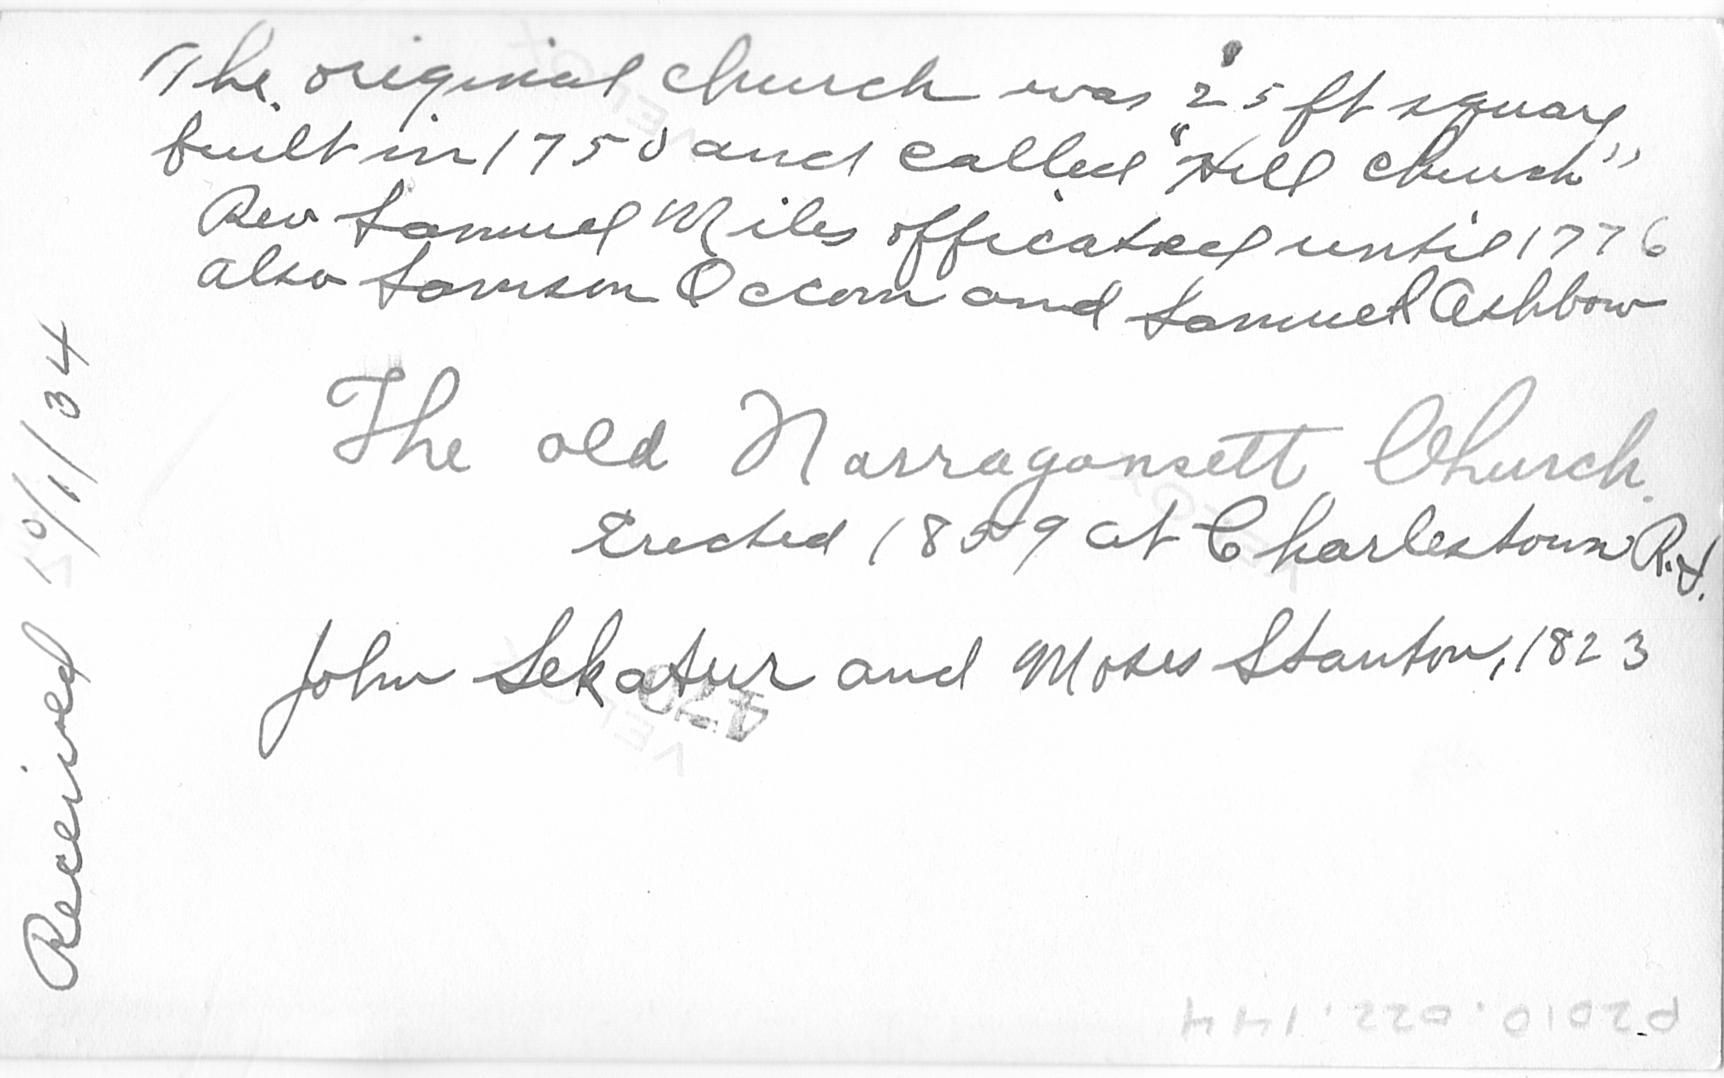 The original church was 25 ft square
built in 1750 and called "Hill Church"
Rev Samuel Niles officated until 1776
also Samson Occom and Samuel Ashbow
The old Narragansett Church.
Erected 1859 at Charlestown R.I.
John Sekatur and Moses Stanton, 1823
Received 10/1/34
P2010.022.144